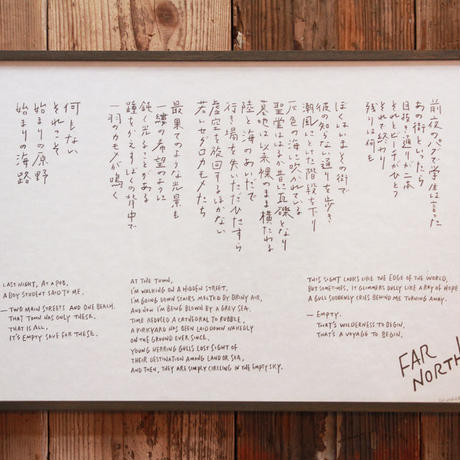 前夜パブで学生は言った
あの街といったら
目抜き通りが二本
それとビーチがひとつ
それで終わり
残りは何も
ぼくはいまその街で
彼の知らない通りを歩き
潮風にとけた階段を下り
灰色の海に吹かれている
聖堂ははるか昔に瓦礫となり
墓地は以来裸のまま横たわる
陸と海のあいだで
行き場を失いただひたすら
虚空を旋回するほかない
若いセグロカモメたち
最果てのような光景も
一縷の希望のように
鈍く光ることがある
踵をかえすぼくの背中で
一羽のカモメが鳴く
何もない
それこそ
始まりの原野
始まりの海路
LAST NIGHT, AT A PUB,
A BOY STUDENT SAID TO ME,
— TWO MAIN STREETS AND ONE BEACH.
THAT TOWN HAS ONLY THESE.
THAT IS ALL.
IT'S EMPTY SAVE FOR THESE.
AT THE TOWN,
I'M WALKING ON A HIDDEN STREET,
I'M GOING DOWN STAIRS MELTED BY BRINY AIR,
AND NOW I'M BEING BLOWN BY A GREY SEA.
TIME REDUCED A CATHEDRAL TO RUBBLE,
A KIRKYARD HAS BEEN LAID DOWN NAKEDLY
ON THE GROUND EVER SINCE.
YOUNG HERRING GULLS LOST SIGHT OF
THEIR DESTINATION AMONG LAND OR SEA,
AND THEN, THEY ARE SIMPLY CIRCLING IN THE EMPTY SKY.
THIS SIGHT LOOKS LIKE THE EDGE OF THE WORLD,
BUT SOMETIMES, IT GLIMMERS DULLY LIKE A RAY OF HOPE
A GULL SUDDENLY CRIES BEHIND ME TURNING AWAY.
— EMPTY.
THAT'S WILDERNESS TO BEGIN,
THAT'S A VOYAGE TO BEGIN.
FAR
NORTH